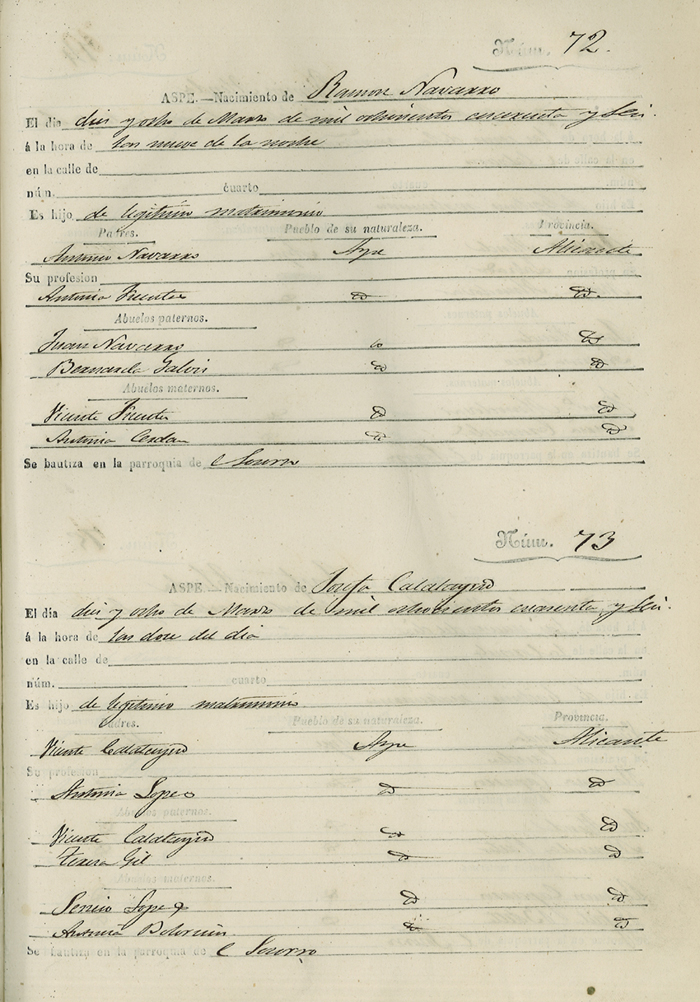 Núm. 72.
ASPE.—Nacimiento de Ramon Navarro
El dia diez y ocho de Marzo de mil ochocientos cuarenta y seis.
á la hora de las nueve de la noche
en la calle de
núm. cuarto
Es hijo de legitimo matrimonio
Padres. Pueblo de su naturaleza. Provincia.
Antonio Navarro Aspe Alicante
Su profesion
Antonia Fuentes id id.
Abuelos paternos.
Juan Navarro id id
Bernarda id id
Abuelos maternos.
Vicente Fuentes id id
Antonia Cerdan id id
Se bautiza en la parroquia de el Socorro
Núm. 73
ASPE.—Nacimiento de Josefa Calatayud
El dia diez y ocho de Marzo de mil ochocientos cuarenta y seis.
á la hora de las doce del dia
en la calle de
núm. cuarto
Es hijo de legitimo matrimonio
Padres. Pueblo de su naturaleza. Provincia.
Vicente Calatayud Aspe Alicante
Su profesion
Antonia Lopez id id
Abuelos paternos.
Vicente Calatayud id id
Teresa Gil id id
Abuelos maternos.
Lopez id id
Antonia id id
Se bautiza en la parroquia de el Socorro